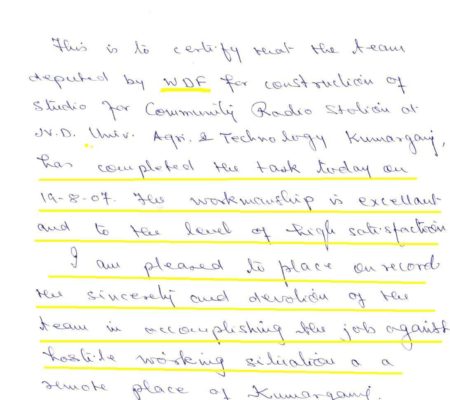 This is to certify that the team
deputed by WDF for construction of
Studio for Community Radio Station at
N.D. Univ. Agri. & Technology Kumarganj,
has completed the task today on
19-8-07. The workmanship is excellant
and to the level of high satisfaction
I am pleased to place on record
the sincerety and devotion of the
team in accomplishing the job against
hostile working situation a a
remote place of Kumarganj.